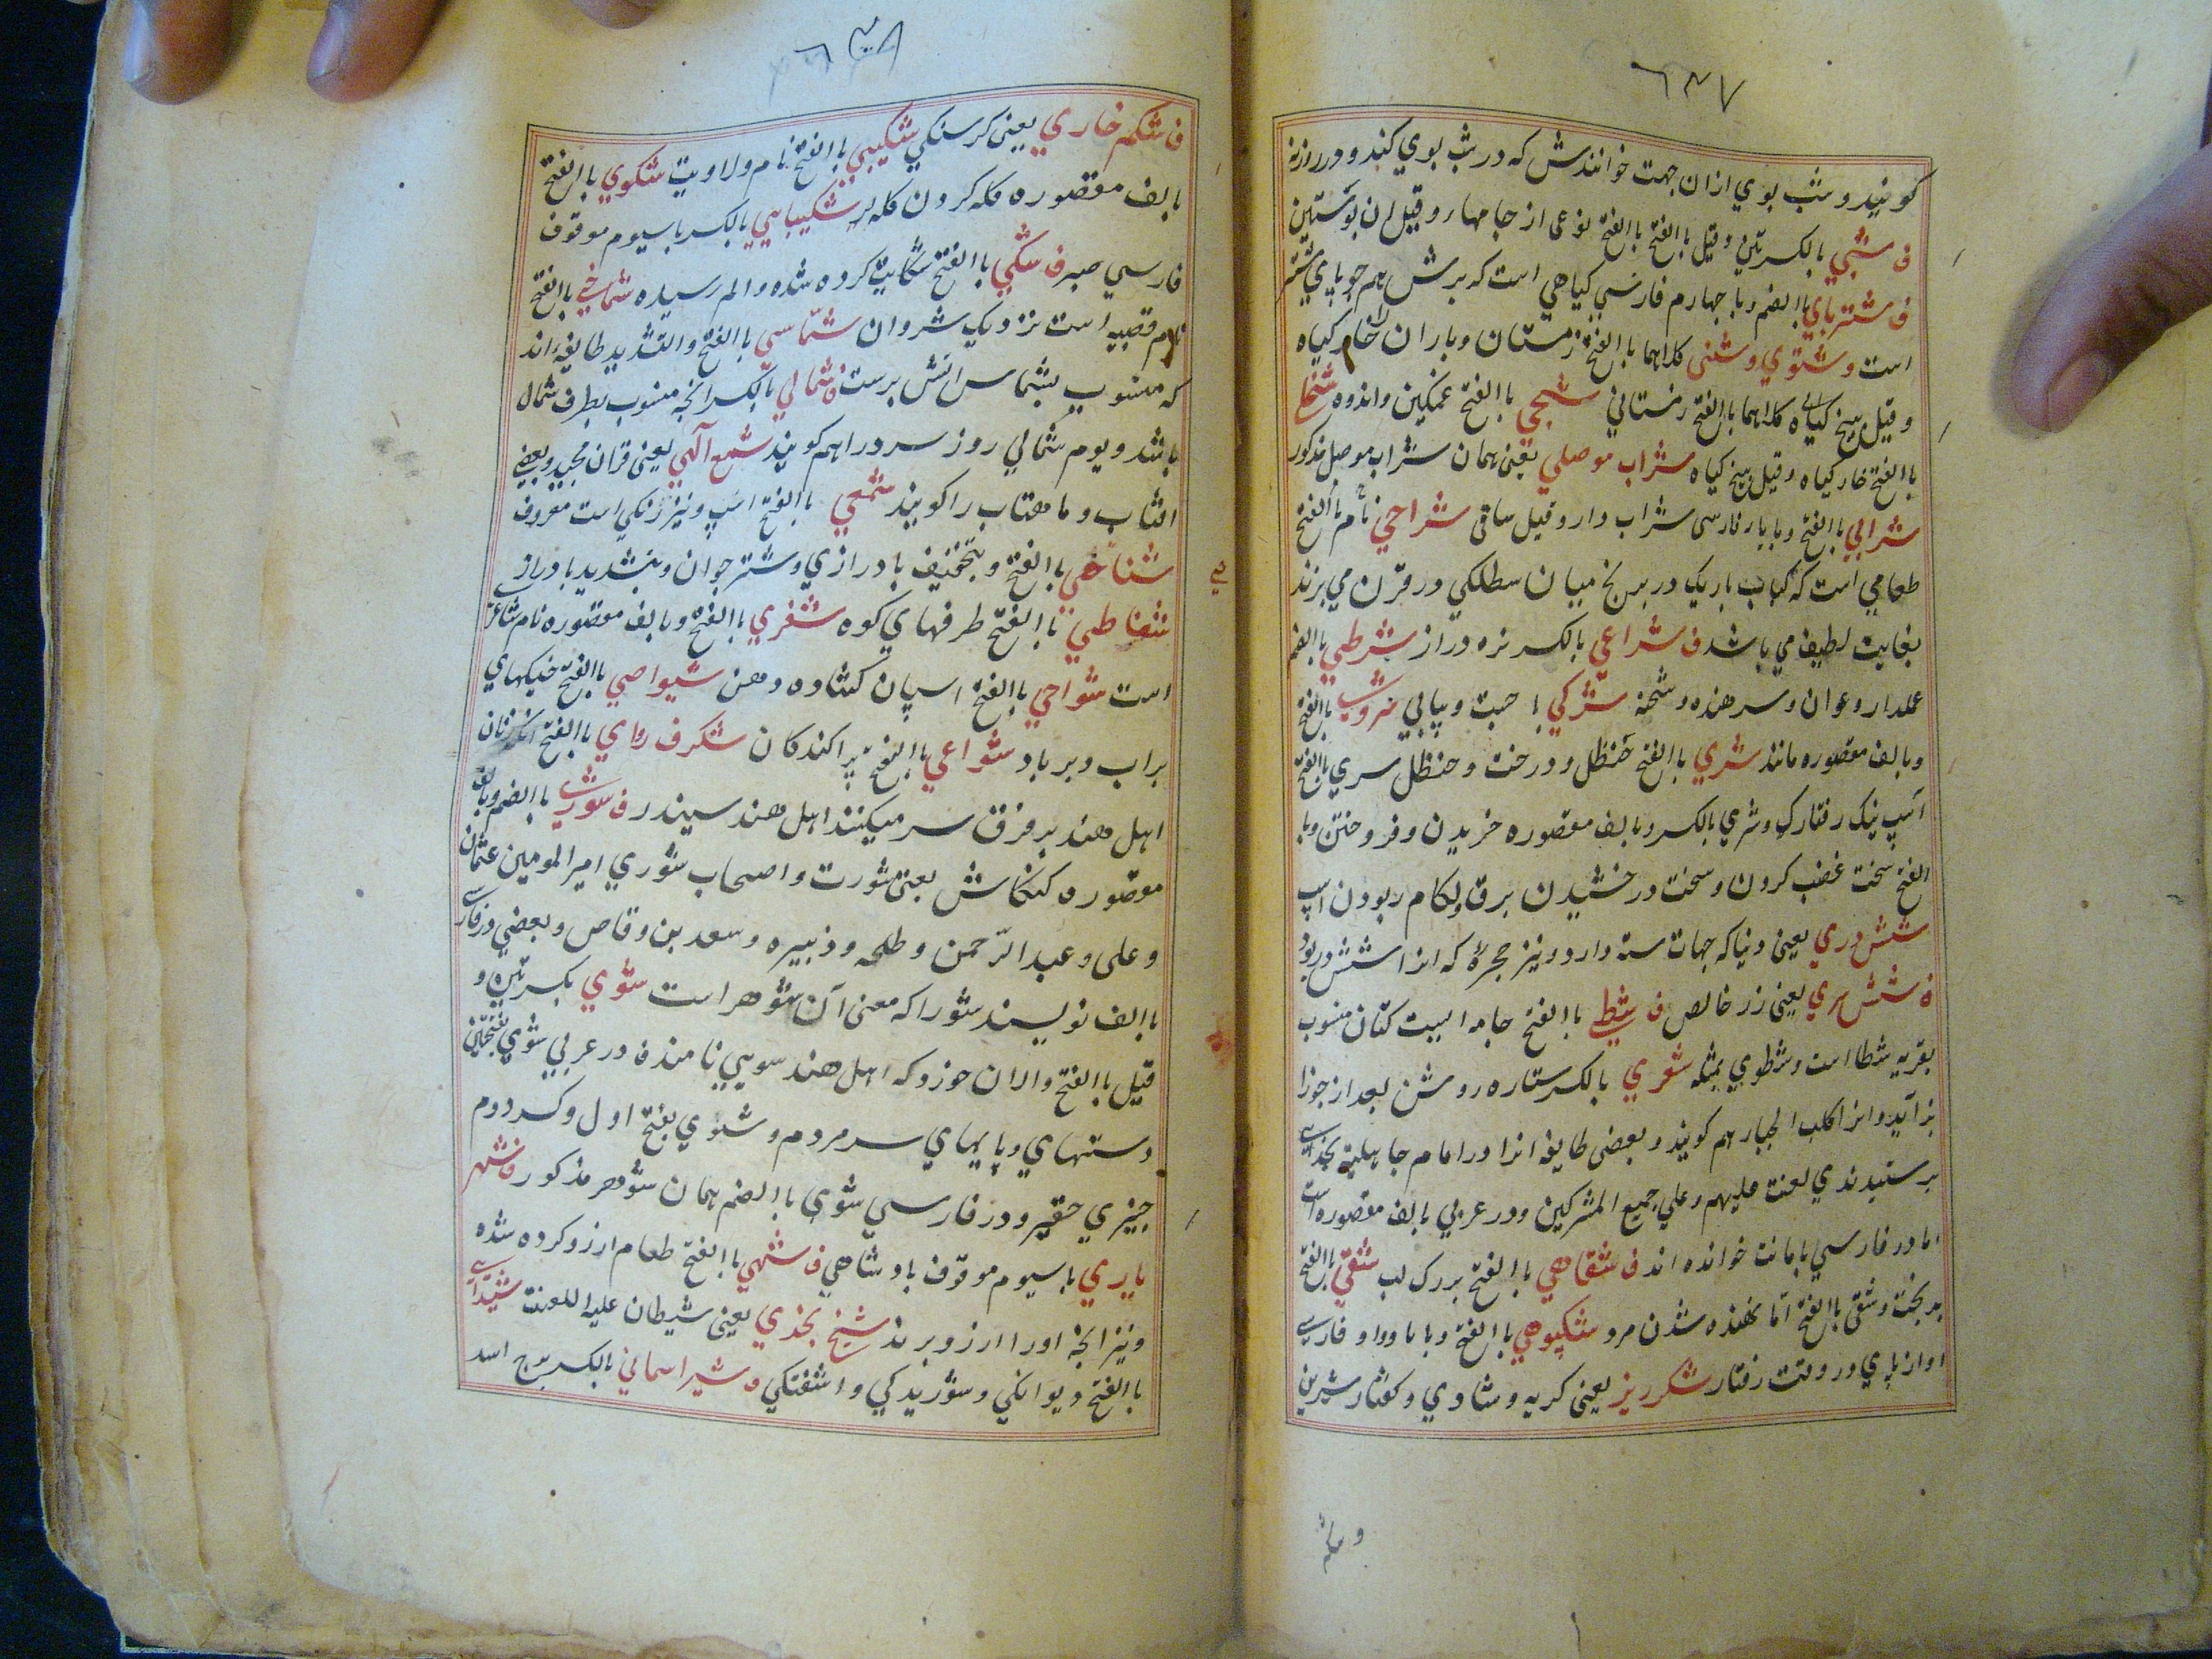 ٦٣٧
کویند و شب بوي ازان جهت خوانندش که در شب بوي کند و در روز نه
ف شبي بالکسرتین و قیل باالفتح باالفتح نوعی از جامهار و قیل ان پوستین
ف شترباي باالضم و با جهارم فارسي کیاهي است که برش هم چو پاي شتر
است و شتوي و شتی کلاهما باالفتح زمستان و باران خام کیاه
و قیل بیخ کیاه کلاهما باالفتح زمستاني شجي باالفتح غمکین و اندوه
باالفتح خار کیاه و قیل بیخ کیاه شراب موصلي یعنی همان شراب موصل مذکور
شرابي باالفتح و بابار فارسی شراب دار و قیل ساقی شراحي نام باالفتح
طعامي است که کباب باریک در برنج میان سطلکي در قرن مي برند
بغایت لطیف مي باشد ف شراعي بالکسر نزه دراز شرطي باالضم
عملدار و عوان و سرهنده و شحنه شرکي با حبت و بیابي شروي باالفتح
و بالف مقصوره مانند شري باالفتح حنظل و درخت و حنظل سري باالفتح
اسپ نیک رفتار و شري بالکسر و بالف مقصوره خریدن و فروختن و با
الفتح سخت غضب کردن و سخت درخشیدن برق و لکام ربودن اسپ
شش دري یعنی دنیا که جهات سته دارد و نیز حجرۀ که انرا شش در بود
ف شش سري یعنی زر خالص ف شطي باالفتح جامه ایست کتان منسوب
بقریه شطا است و شطوي بمثله شعري بالکسر ستاره روشن بعد از جوزا
بر آید و انرا کلب الجبار هم کویند و بعضی طایفه انرا در ایام جاهلیة بخداي
برستیدندي لعنت علیهم و علي جمیع المشرکین و در عربي بالف مقصوره است
اما در فارسي بامانت خوانده اند ف شفاهي باالفتح بزرک لب شقي باالفتح
بدبخت و شقی باالفتح اما کفنده شدن مرو شکپوهي باالفتح و با واو فارسي
اواز پاي در وقت رفتار شکرریز یعنی کریه و شادي و کفتار شیرین
ف شکم خاري یعنی کرسنکي شکیبي باالفتح نام ولاویت شکوي باالفتح
بالف مقصوره کله کردن کله شکیبایي بالکسر با سیوم موقوف
فارسي صبر ف شکي باالفتح شکایت کرده شده و الم رسیده شماخي باالفتح
نام قصبه است نزدیک شروان شماسي باالفتح و التشدید طایفه اند
که منسوب بشماس اتش پرست شمالي بالکسر انچه منسوب بطرف شمال
باشد و یوم شمالي روز سرد را هم کویند شمع الهي یعنی قران مجید و بعضي
افتاب و ماهتاب را کویند شمعي باالفتح اسپ و نیز رنکي است معروف
شناحي باالفتح و بتخفیف با درازي و شتر جوان و بتشدید با دراز
شناطي باالفتح طرفهاي کوه شنفري باالفتح و بالف مقصوره نام شاعر
است شواحي باالفتح اسپان کشاده دهن شواصي باالفتح خیکهاي
براب و بر باد شواعي باالفتح پراکندکان شکرف راي باالفتح زنان
اهل هند بر فرق سر میکنند اهل هند سیندر ف شوري باالضم و بالف
مقصوره کنکاش یعنی مشورت و اصحاب شوري امیرالمومین عثمان
و علی و عبد الرحمن و طلحه و ذبیره و سعد بن وقاص و بعضي در فارسي
باالف نویسند شورا که معنی ان شوهر است شوي بکسرتین و
قیل باالفتح و الدان خورد که اهل هند سویي نامند ف در عربي شوي بفتحتین
دستهاي و پایهاي سر مردم و شوي بفتح اول و کسر دوم
جیزي حقیر و در فارسي شوي باالضم همان شوهر مذکور ف شهر
یاري با سیوم موقوف بادشاهي ف شهي باالفتح طعام ارزو کرده شده
و نیز انچه او را ارزو برند شیخ نجدي یعنی شیطان علیه اللعنت شیدایي
باالفتح دیوانکي و شوریدکي و اشفتکي ف شیر اسماني بالکسر برج اسد